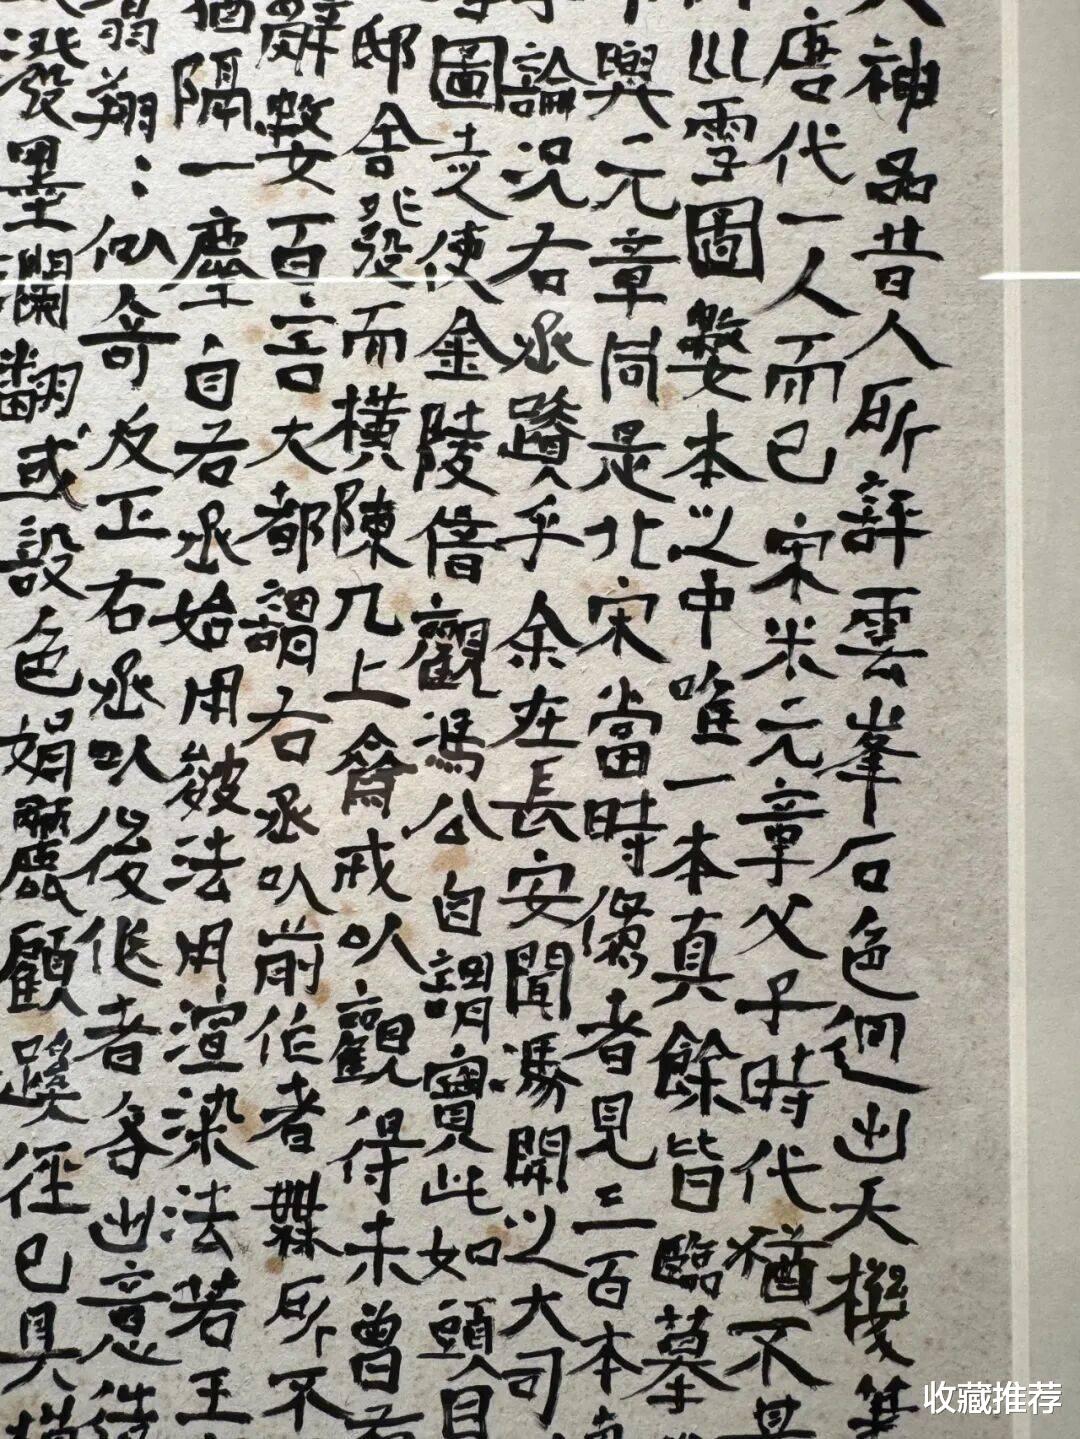 神品昔人所評雲峯石色迥出天機筆
唐代一人而已宋米元章父子時代猶不甚
川雪圖數本之中唯一本真餘皆臨摹
與元章同是北宋當時偽者見三百本真
論況右丞蹟乎余在長安聞馮開之大司
圖走使金陵借觀馮公自謂寶此如頭目
邸舍發而橫陳几上齋戒以觀得未曾有
辭數百言大都謂右丞以前作者無所不
猶隔一塵自右丞始用皴法用渲染法若王
翔：似奇反正右丞以後作者各出意造
潑墨瀾翻或設色娟麗顧蹊徑已具模
收藏推荐